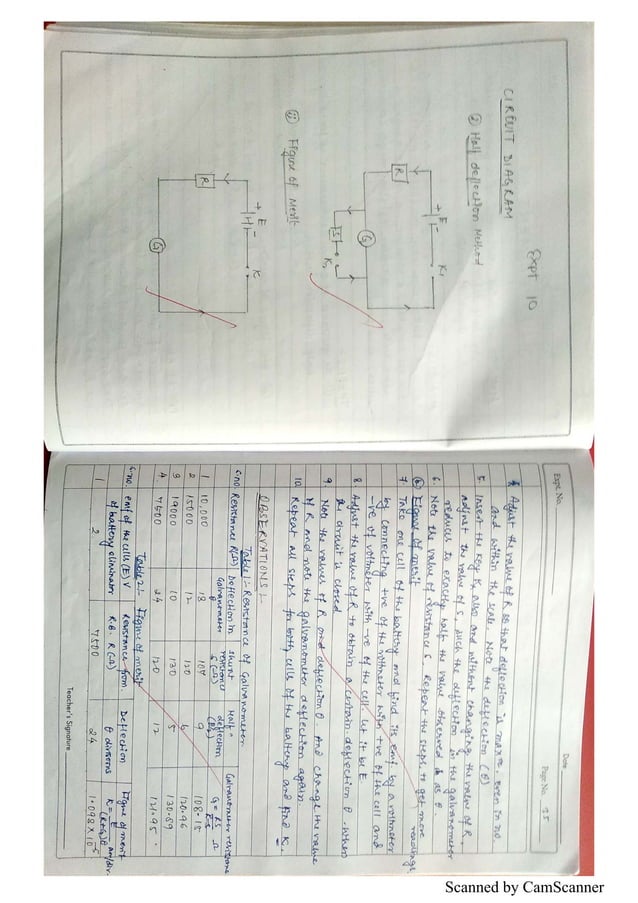 Expt 10
CIRCUIT DIAGRAM
① Half deflection Method
+ E - K₁
R
G
S K₂
ii) Figure of Merit
+ E - K
R
G
Expt. No.
Date
Page No. 25
4. Adjust the value of R so that deflection is max m. even in no.
and within the scale. Note the deflection (θ)
5. Insert the key K₂ also and without changing the value of R,
adjust the value of S, such the deflection in the galvanometer
reduces to exactly half the value observed as θ.
6. Note the value of resistance S. Repeat the steps to get more
readings
(b) Figure of merit
7. Take one cell of the battery and find its emf by a voltmeter
by connecting +ve of the voltmeter with +ve of the cell and
-ve of voltmeter with -ve of the cell let it be E
8. Adjust the value of R to obtain a certain deflection θ. when
the circuit is closed
9. Note the values of R and deflection θ And change the value
of R and note the galvanometer deflection again
10. Repeat all steps for both cells of the battery and find K.
OBSERVATIONS :-
Table 1:- Resistance of Galvanometer.
S.no. Resistance R(Ω) Deflection in Galvanometer θ Shunt resistance S(Ω) Half deflection (θ/2) Galvanometer resistance G = RS/R-S Ω
1 10,000 18 107 9 108.15
2 15000 12 120 6 120.96
3 19000 10 130 5 130.89
4 7500 24 120 12 121.95
Table 2:- Figure of merit
S.no. emf of the cells (E) V of battery eliminator Resistance from R.B. R(Ω) Deflection θ divisions Figure of merit K = E/(R+G)θ am/div.
1 2 7,500 24 1.093 × 10⁻⁵
Teacher's Signature
Scanned by CamScanner